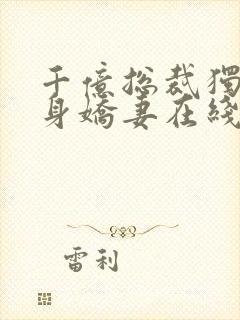 千億總裁獨
身嬌妻在綫
雷利